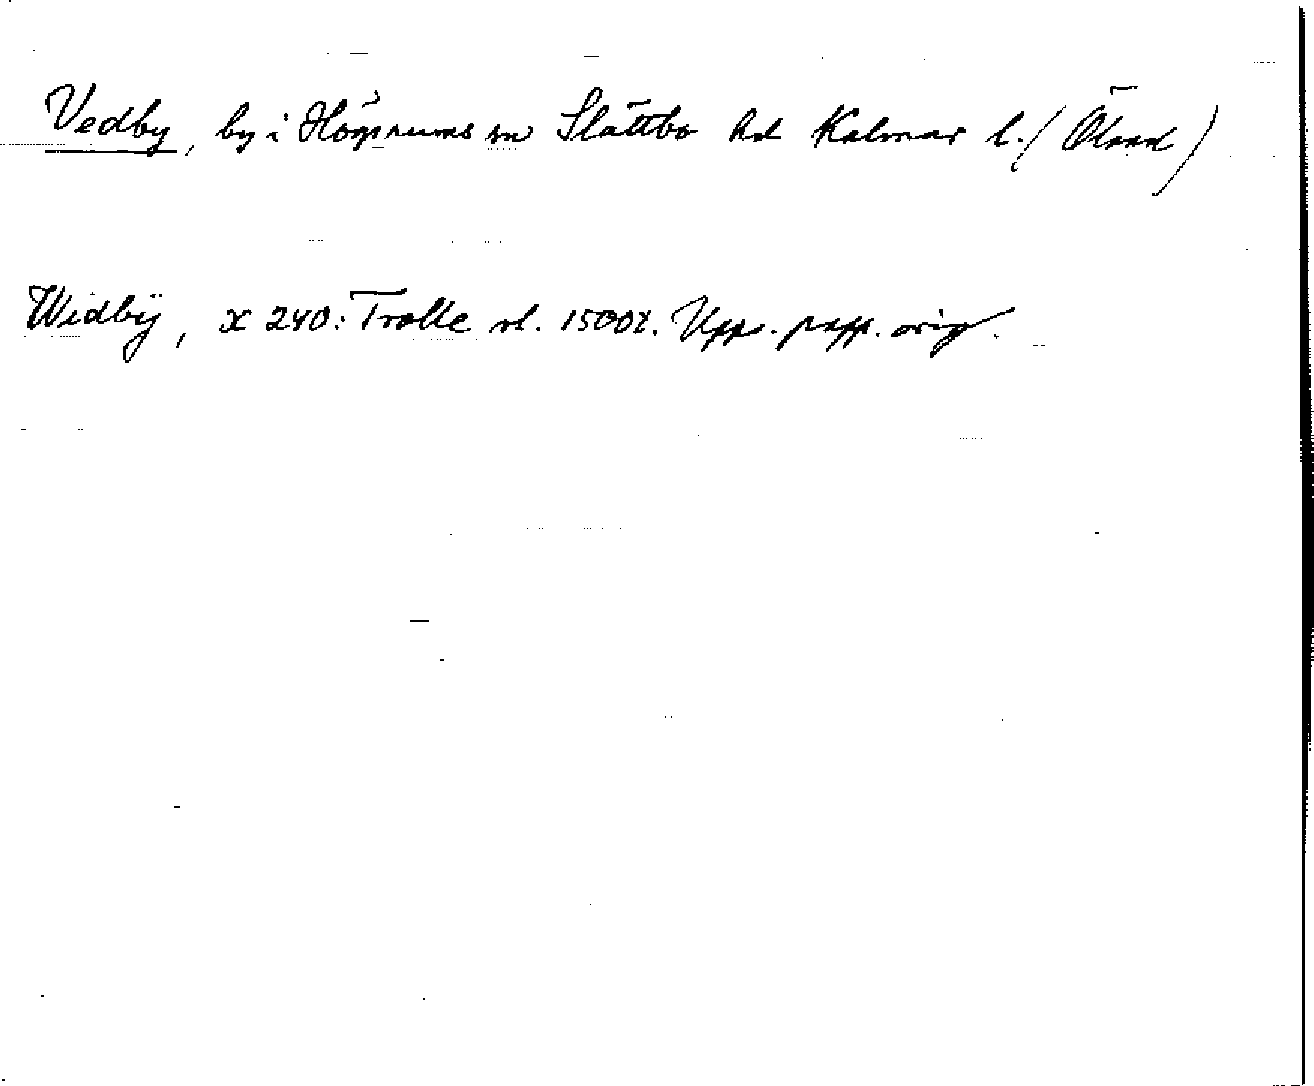 Vedby, by i Högsrums sn Slättbo hd Kalmar l. (Öland)
Widbÿ, x 240: Trolle rl. 1500t. Upps. papp. orig.